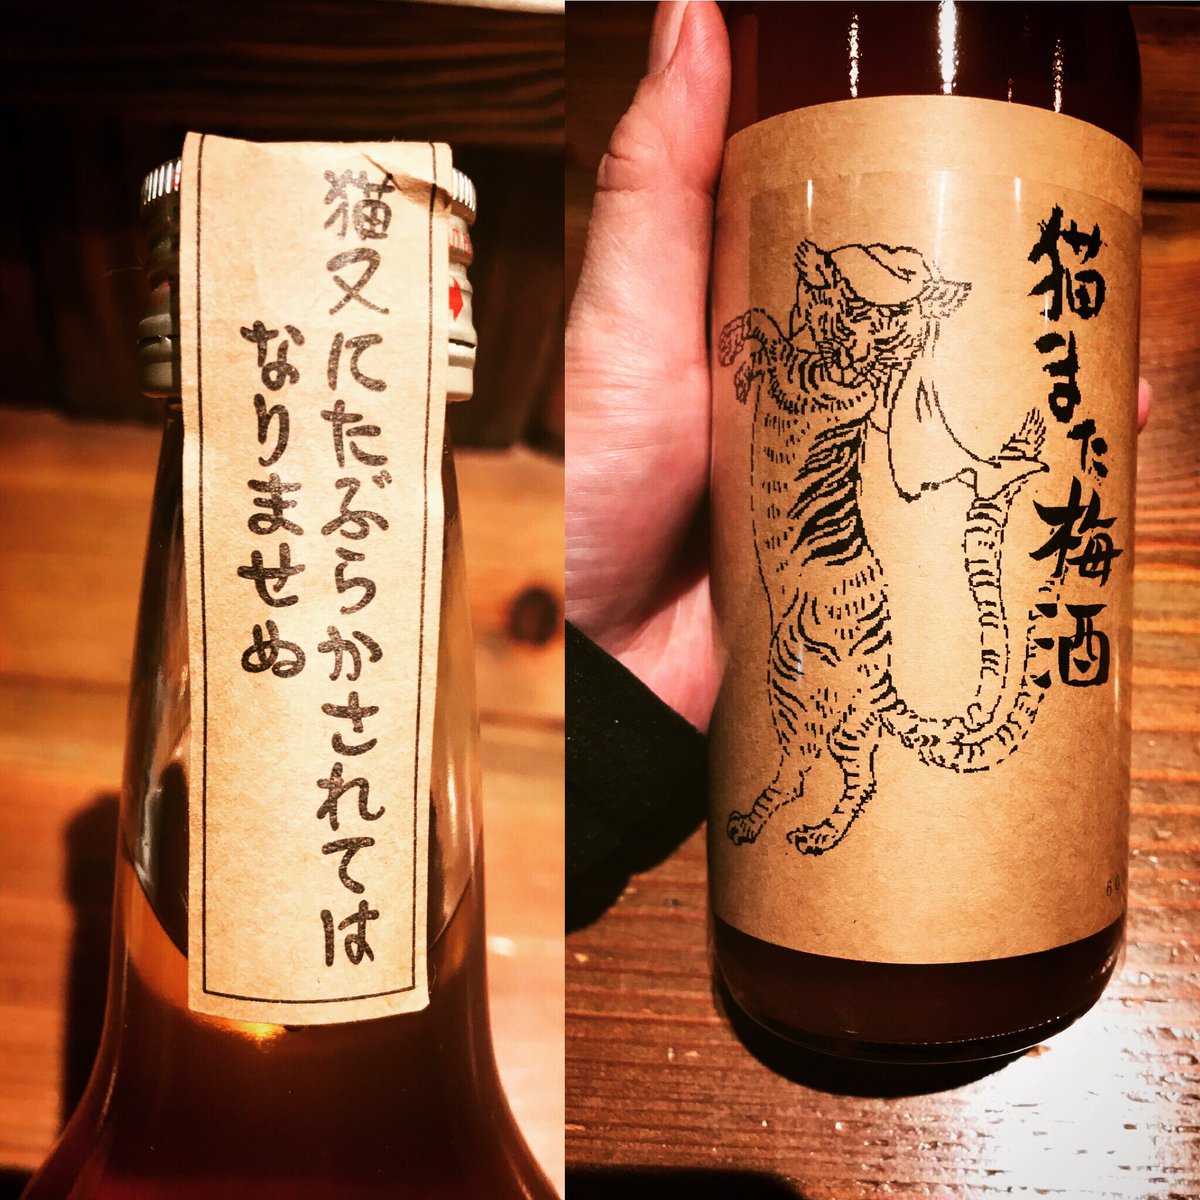 猫又にたぶらかされては
なりませぬ
猫また梅酒